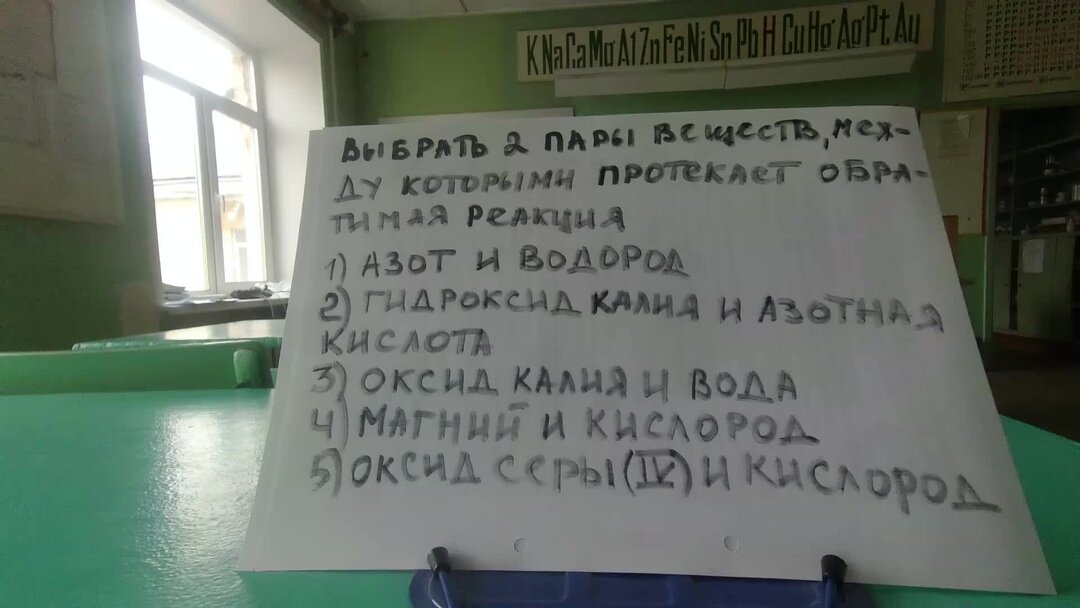 K Na Ca Mg Al Zn Fe Ni Sn Pb H Cu Hg Ag Pt Au
ВЫБРАТЬ 2 ПАРЫ ВЕЩЕСТВ, МЕЖ-
ДУ КОТОРЫМИ ПРОТЕКАЕТ ОБРА-
ТИМАЯ РЕАКЦИЯ
1) АЗОТ И ВОДОРОД
2) ГИДРОКСИД КАЛИЯ И АЗОТНАЯ
КИСЛОТА
3) ОКСИД КАЛИЯ И ВОДА
4) МАГНИЙ И КИСЛОРОД
5) ОКСИД СЕРЫ (IV) И КИСЛОРОД